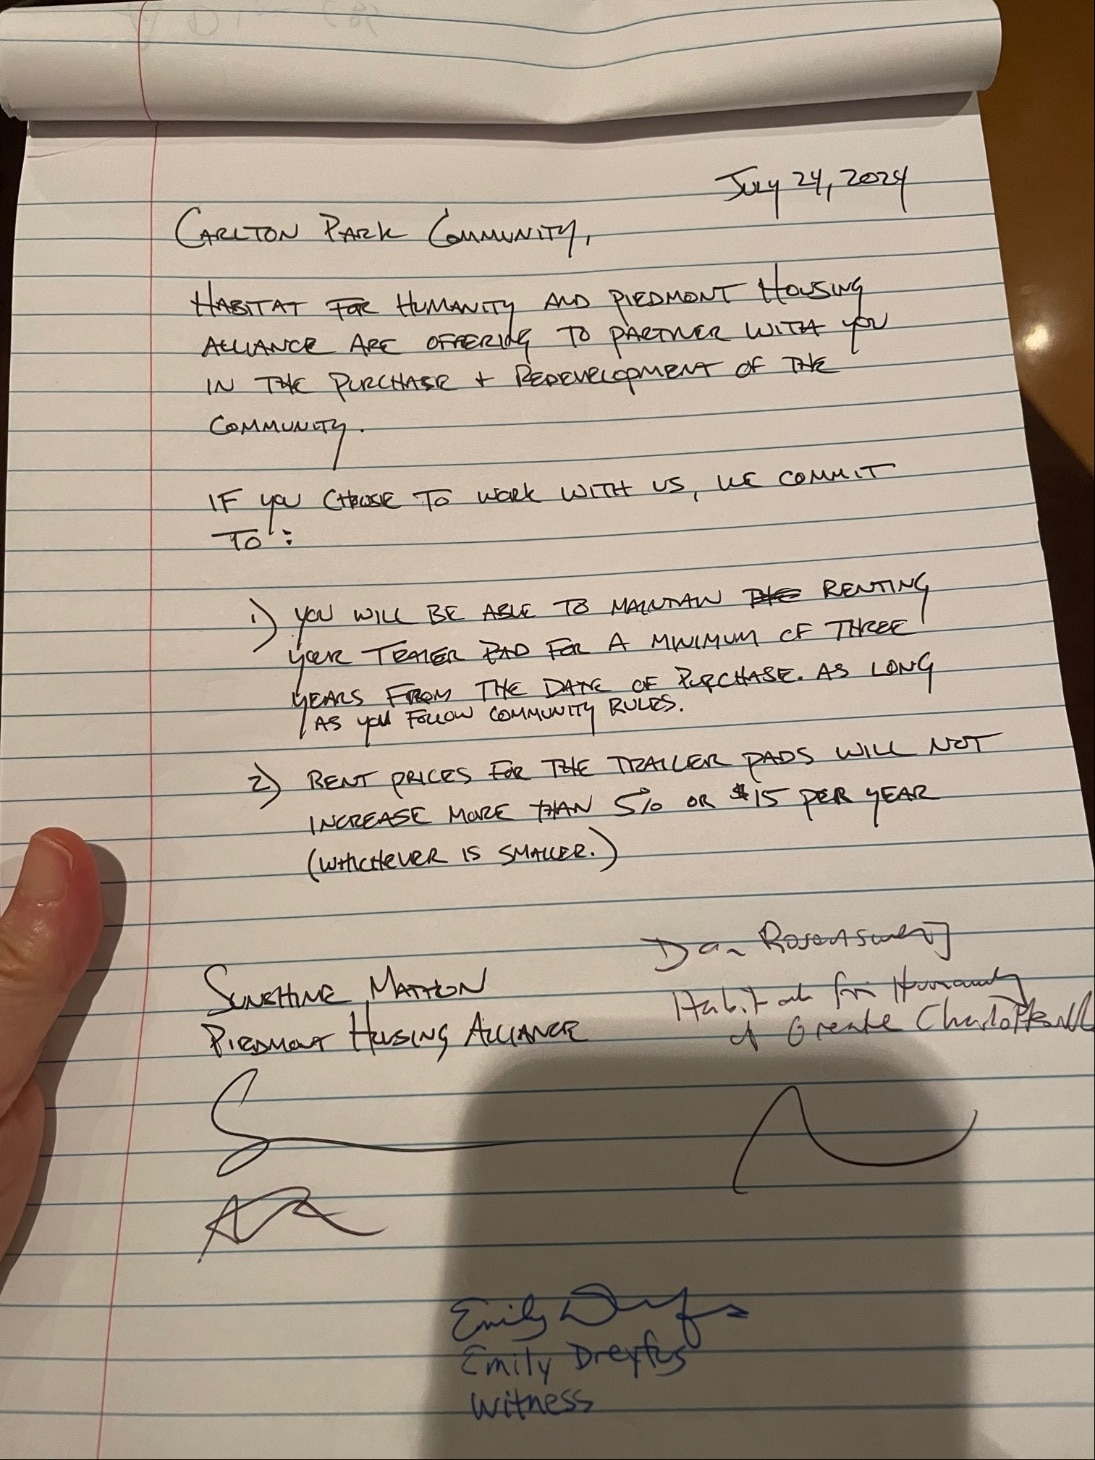 July 24, 2024
Carlton Park Community,
Habitat for Humanity and Piedmont Housing
Alliance are offering to partner with you
in the purchase + redevelopment of the
community.
If you choose to work with us, we commit
to:
1) You will be able to maintain the renting
your trailer pad for a minimum of three
years from the date of purchase. As long
as you follow community rules.
2) Rent prices for the trailer pads will not
increase more than 5% or $15 per year
(whichever is smaller.)
Sunshine Mathon
Piedmont Housing Alliance
Dan Rosensweig
Habitat for Humanity
of Greater Charlottesville
Emily Dreyfus
Emily Dreyfus
Witness